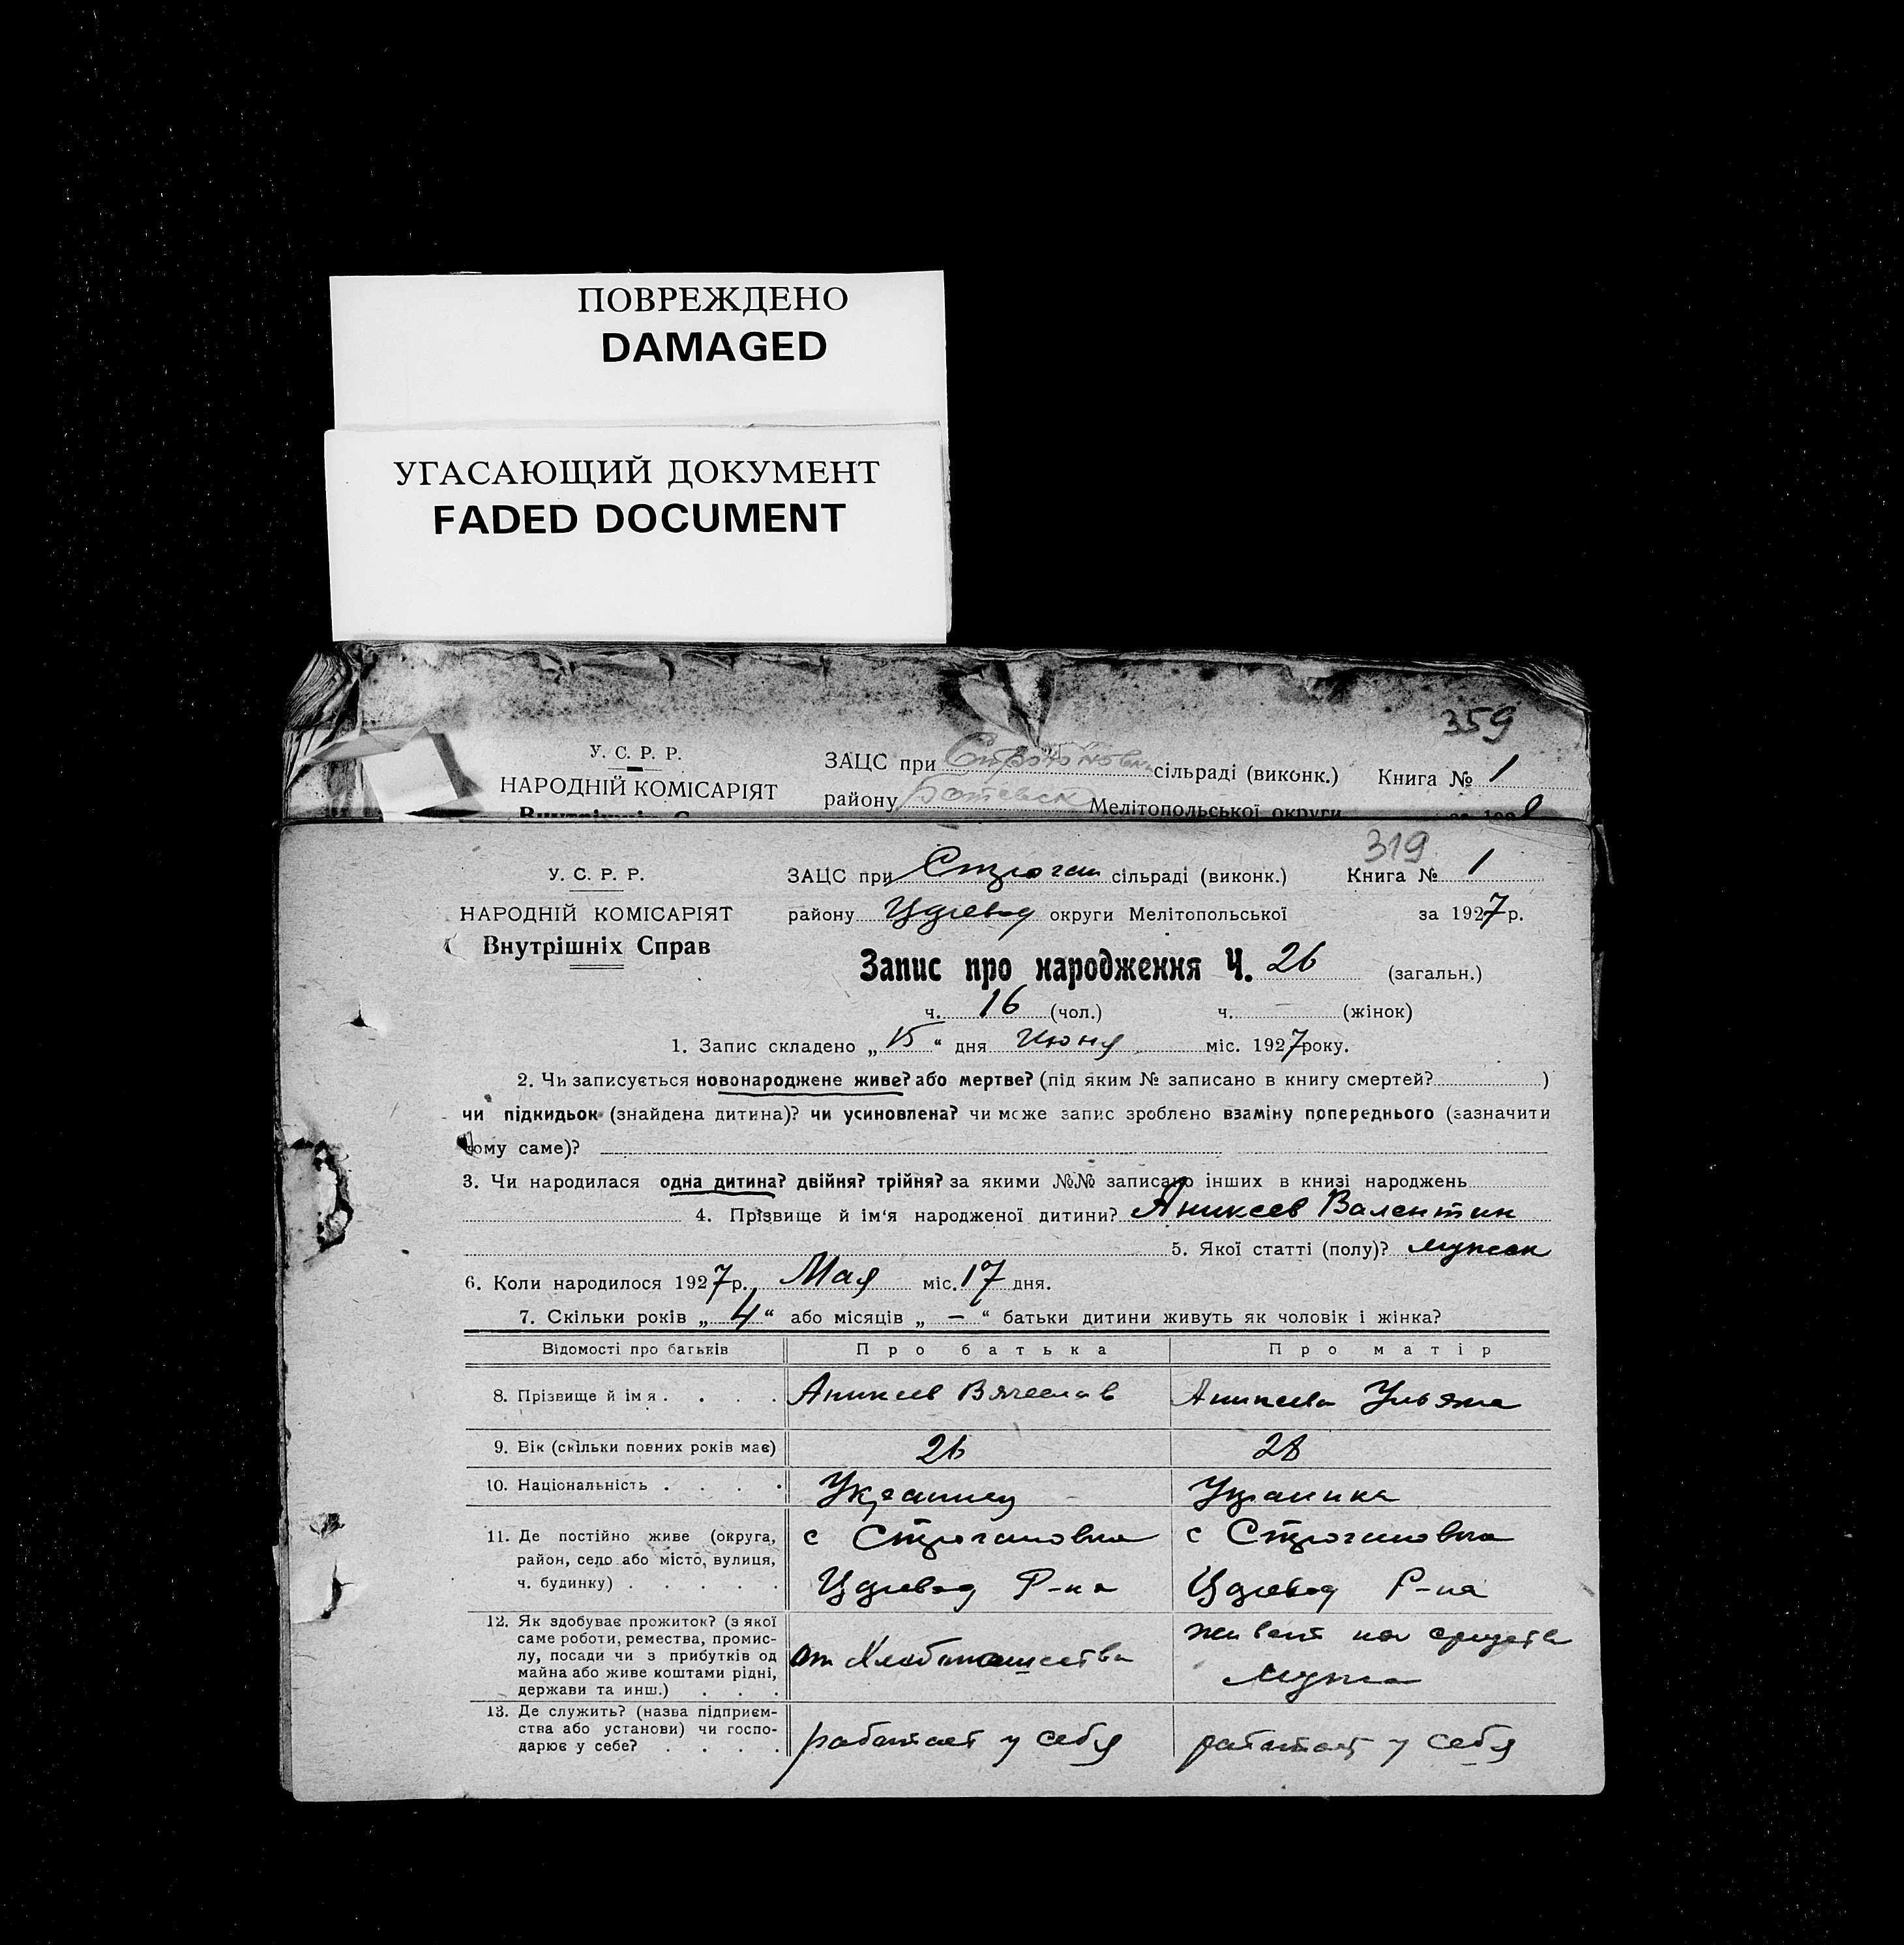 ПОВРЕЖДЕНО
DAMAGED
УГАСАЮЩИЙ ДОКУМЕНТ
FADED DOCUMENT
359
У. С. Р. Р.
НАРОДНІЙ КОМІСАРІЯТ
ЗАЦС при сільраді (виконк.) Книга № 1
району Ботевск Мелітопольської округи
319
У. С. Р. Р.
ЗАЦС при Строган сільраді (виконк.) Книга № 1
НАРОДНІЙ КОМІСАРІЯТ
району округи Мелітопольської за 1927 р.
Внутрішніх Справ
Запис про народження Ч. 26 (загальн.)
ч. 16 (чол.) ч. – (жінок)
1. Запис складено „ 15 “ дня Июня міс. 1927 року.
2. Чи записується новонароджене живе? або мертве? (під яким № записано в книгу смертей? )
чи підкидьок (знайдена дитина)? чи усиновлена? чи може запис зроблено взаміну попереднього (зазначити
чому саме)?
3. Чи народилася одна дитина? двійня? трійня? за якими №№ записано інших в книзі народжень
4. Прізвище й ім‘я народженої дитини? Аникеев Валентин
5. Якої статті (полу)? мужск
6. Коли народилося 1927 р. Мая міс. 17 дня.
7. Скільки років „ 4 “ або місяців „ – “ батьки дитини живуть як чоловік і жінка?
Відомості про батьків
Про батька
Про матір
8. Прізвище й імя . . . .
Аникеев Вячеслав
Аникеева Ульяна
9. Вік (скільки повних років має)
26
28
10. Національність . . . .
Украинец
Украинка
11. Де постійно живе (округа,
район, село або місто, вулиця,
ч. будинку) . . . . .
с Строгановка
Р-на
с Строгановка
Р-на
12. Як здобуває прожиток? (з якої
саме роботи, ремества, промис-
лу, посади чи з прибутків од
майна або живе коштами рідні,
держави та инш.) . . .
от Хлебопашества
живет на средства
мужа
13. Де служить? (назва підприєм-
ства або установи) чи госпо-
дарює у себе? . . . .
работает у себя
работает у себя